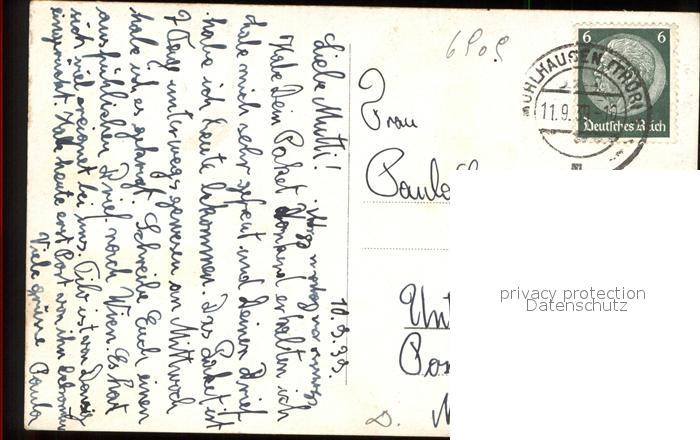 10.9.39.
Liebe Mutti!
Habe Dein Paket dankend erhalten ich
habe mich sehr gefreut und Deinen Brief
habe ich heute bekommen. Das Paket ist
7 Tag unterwegs gewesen am Mittwoch
habe ich es erlangt. Schreibe Euch einen
ausführlichen Brief nach Wien. Es hat
sich viel ereignet bei uns. Tilo ist von Danzig
eingerückt. Habe heute erst Post von ihm bekommen
Viele Grüsse Paula
6909
6 6
Deutsches Reich
MÜHLHAUSEN (THÜR)
11.9.39
Frau
Paula
Unt
Pos
D.
privacy protection
Datenschutz